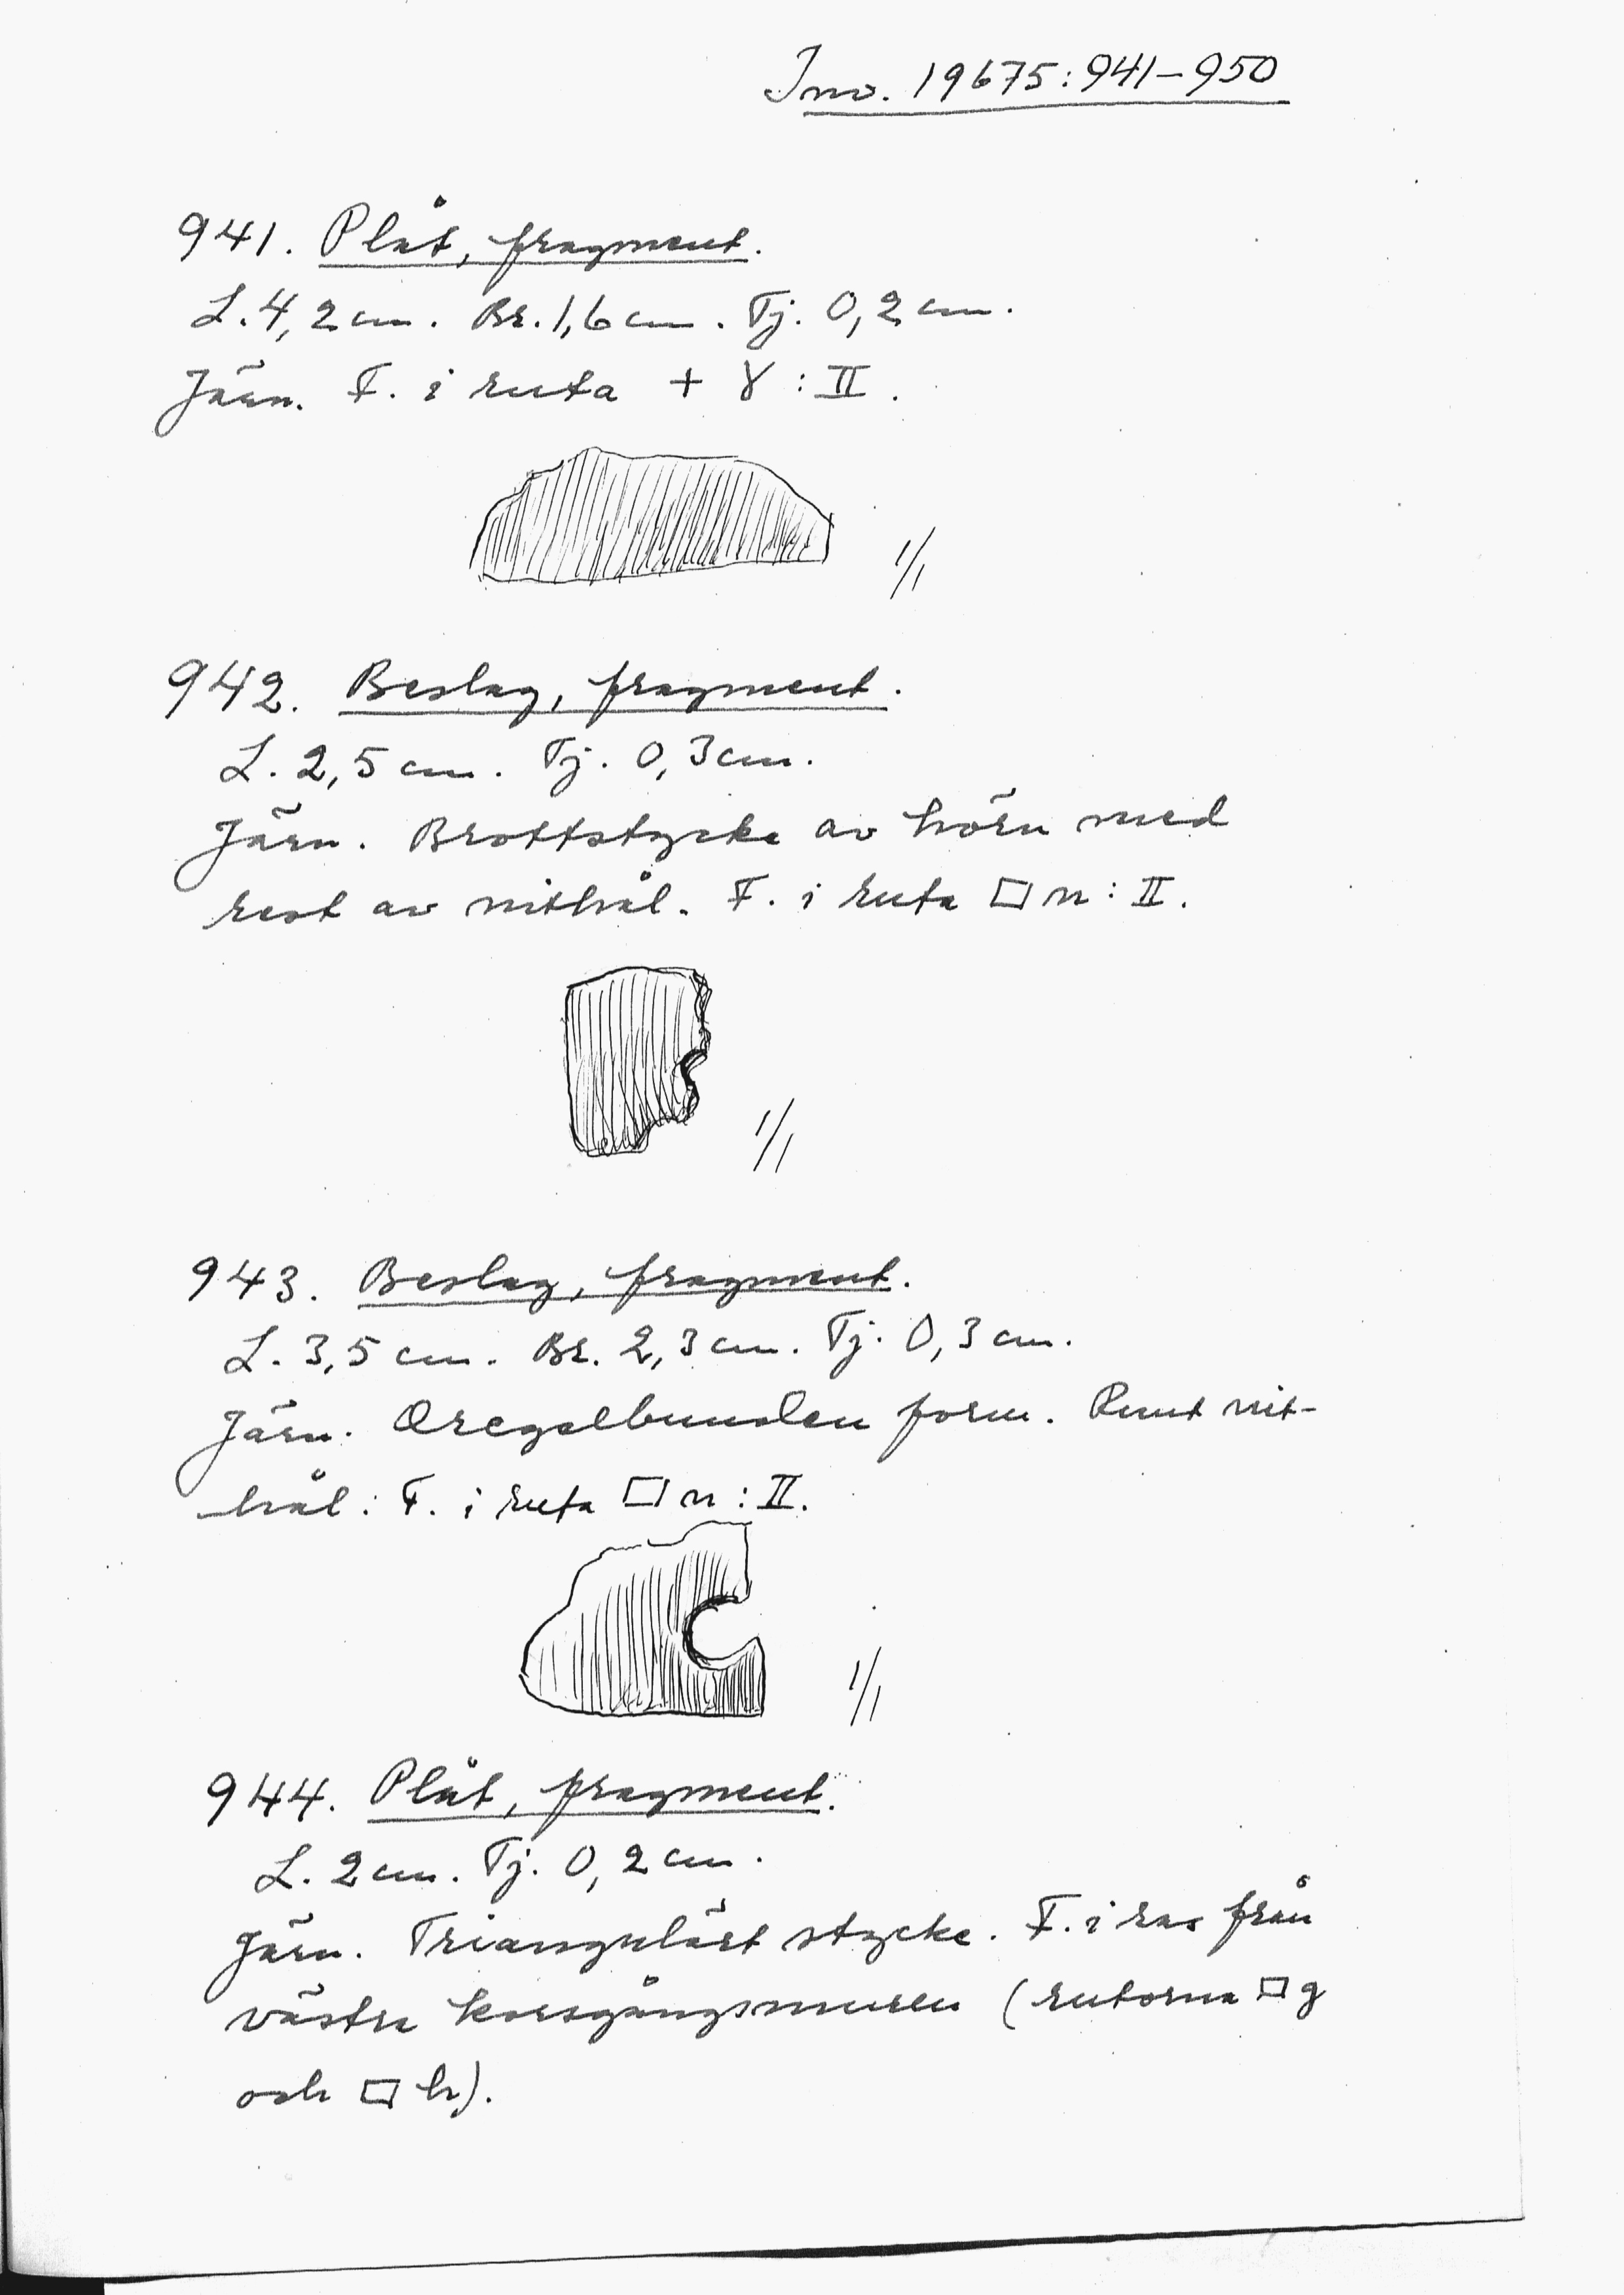 Inv. 19675:941–950
941. Plåt, fragment.
L. 4,2 cm. Br. 1,6 cm. Tj. 0,2 cm.
Järn. F. i ruta + γ : II.
1/1
942. Beslag, fragment.
L. 2,5 cm. Tj. 0,3 cm.
Järn. Brottstycke av hörn med
rest av nithål. F. i ruta □ n : II.
1/1
943. Beslag, fragment.
L. 3,5 cm. Br. 2,3 cm. Tj. 0,3 cm.
Järn. Oregelbunden form. Runt nit-
hål. F. i ruta □ n : II.
1/1
944. Plåt, fragment.
L. 2 cm. Tj. 0,2 cm.
Järn. Triangulärt stycke. F. i ras från
västra korsgångsmuren (rutorna □ g
och □ h).